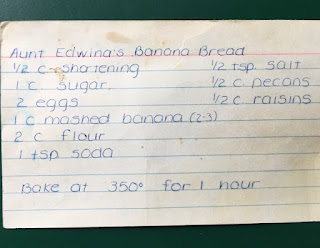 Aunt Edwina's Banana Bread
1/2 c shortening 1/2 tsp. salt
1 c. sugar 1/2 c. pecans
2 eggs 1/2 c. raisins
1 c mashed banana (2-3)
2 c flour
1 tsp soda
Bake at 350° for 1 hour